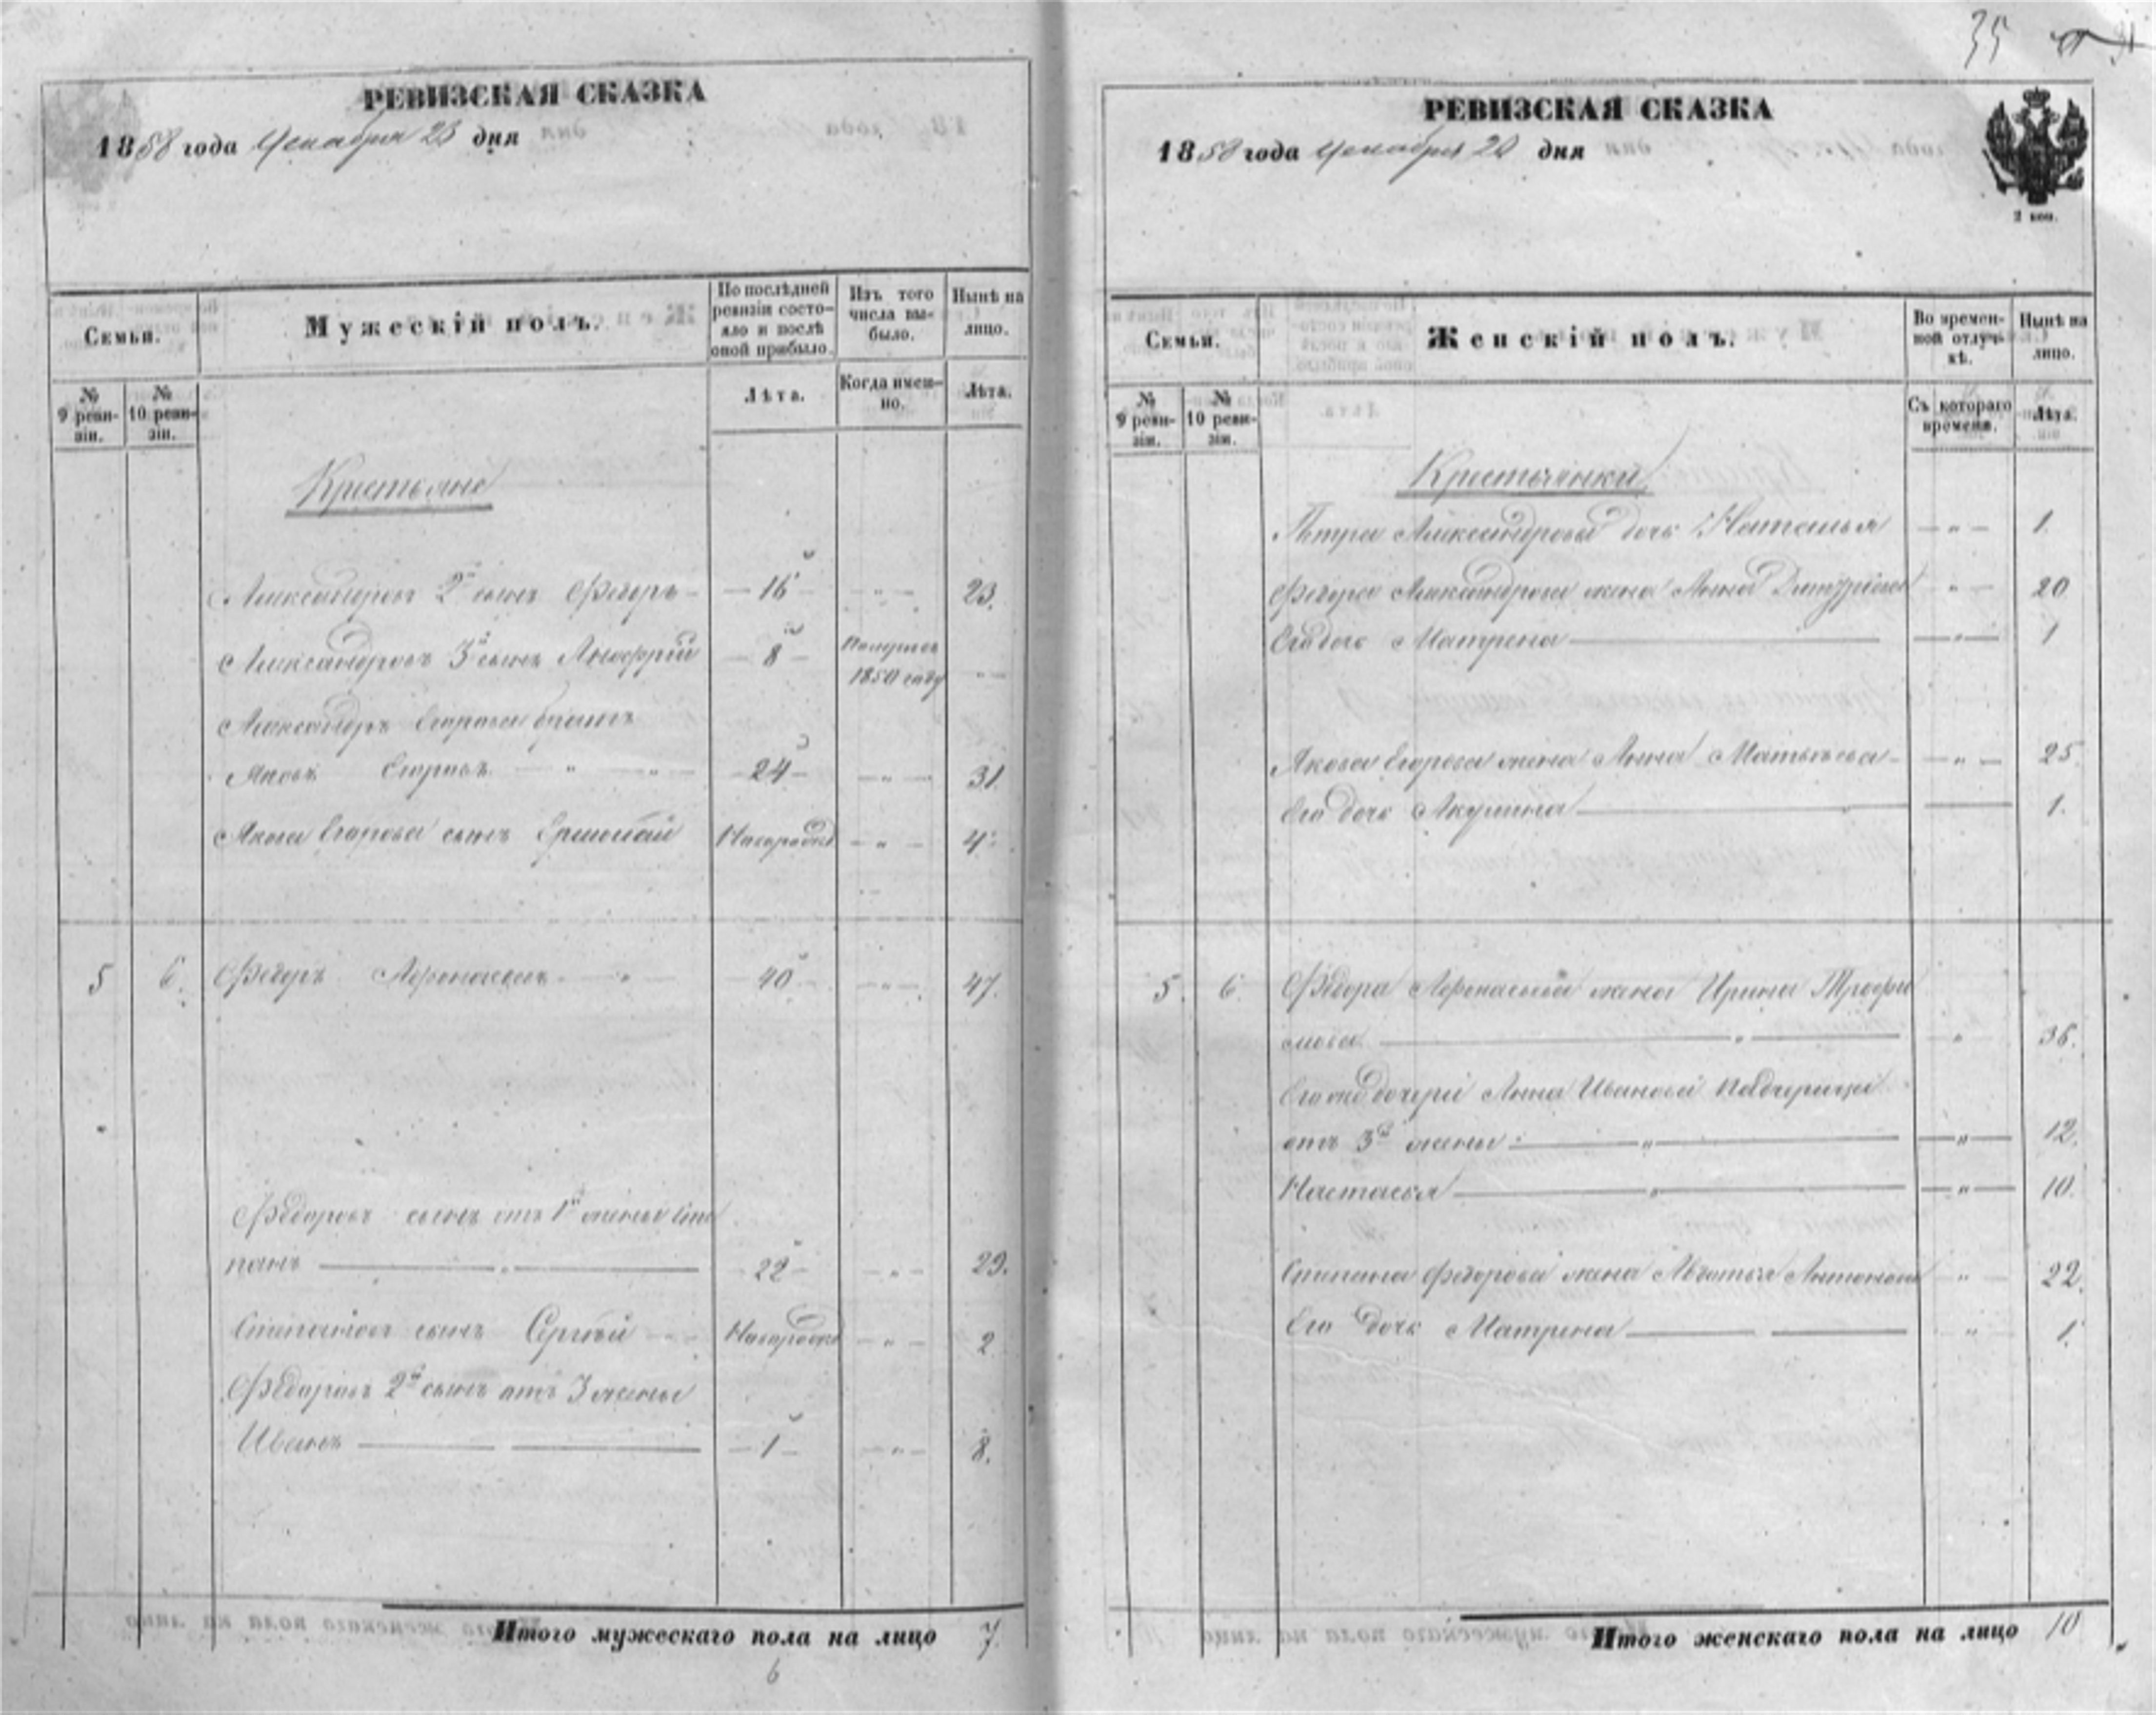 35
РЕВИЗСКАЯ СКАЗКА
1858 года Декабря 23 дня
Семьи.
Мужескій полъ.
По послѣдней ревизіи состояло и послѣ оной прибыло.
Изъ того числа выбыло.
Нынѣ на лицо.
№ 9 ревизіи.
№ 10 ревизіи.
Лѣта.
Когда именно.
Лѣта.
Крестьяне
Александровъ 2й сынъ Федоръ 16 " 23.
Александровъ 3й сынъ 8 1850 году "
Александръ Егорова братъ
Яковъ Егоровъ " " 24 " 31.
Якова Егорова сынъ Ермолай Новорожд " 4
5 6. Федоръ Афонасьевъ " 40 " 47.
Федоровъ сынъ отъ 1й жены Сте
панъ " 22 " 29.
Степановъ сынъ Сергѣй Новорожд " 2.
Федоровъ 2й сынъ отъ 3 жены
Иванъ 1 " 8.
Итого мужескаго пола на лицо 7.
6
РЕВИЗСКАЯ СКАЗКА
1858 года Декабря дня
2 коп.
Семьи.
Женскій полъ.
Во временной отлучкѣ.
Нынѣ на лицо.
№ 9 ревизіи.
№ 10 ревизіи.
Съ котораго времени.
Лѣта.
Крестьянки
Петра Александрова дочь Наталья " 1.
Федора Александрова жена Анна Дмитріева " 20
Его дочь Матрена " 1
Якова Егорова жена Анна Матвѣева " 25.
Его дочь Акулина 1.
5. 6 Федора Афонасьева жена Ирина Трофи
мова " " 36.
Его же дочери Анна Иванова падчерица
отъ 3й жены " " 12.
Настасья " " 10.
Степана Федорова жена Агафья Антонова " 22.
Его дочь Матрена " 1.
Итого женскаго пола на лицо 10